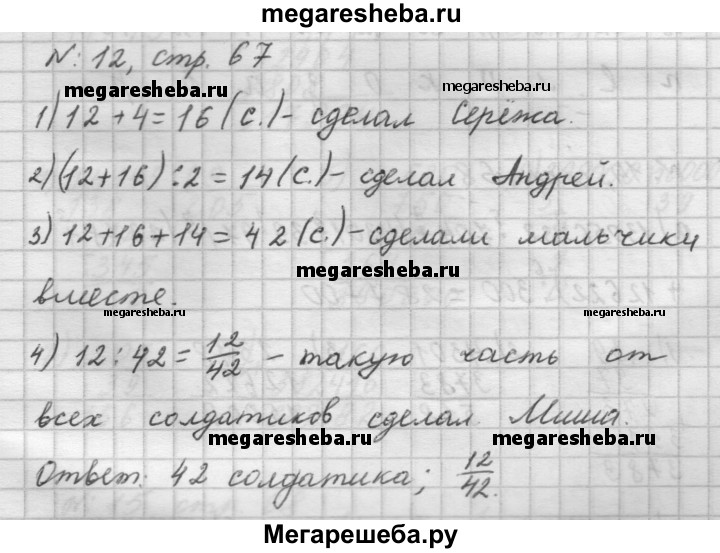 megaresheba.ru
N: 12, стр. 67
megaresheba.ru
megaresheba.ru
1) 12 + 4 = 16 (с.) - сделал Серёжа.
2) (12+16) : 2 = 14 (с.) - сделал Андрей.
3) 12+16+14 = 42 (с.) - сделали мальчики
megaresheba.ru
вместе.
megaresheba.ru
megaresheba.ru
4) 12 : 42 = 12/42 - такую часть от
всех солдатиков сделал Миша.
megaresheba.ru
megaresheba.ru
Ответ: 42 солдатика; 12/42.
Мегарешеба.ру